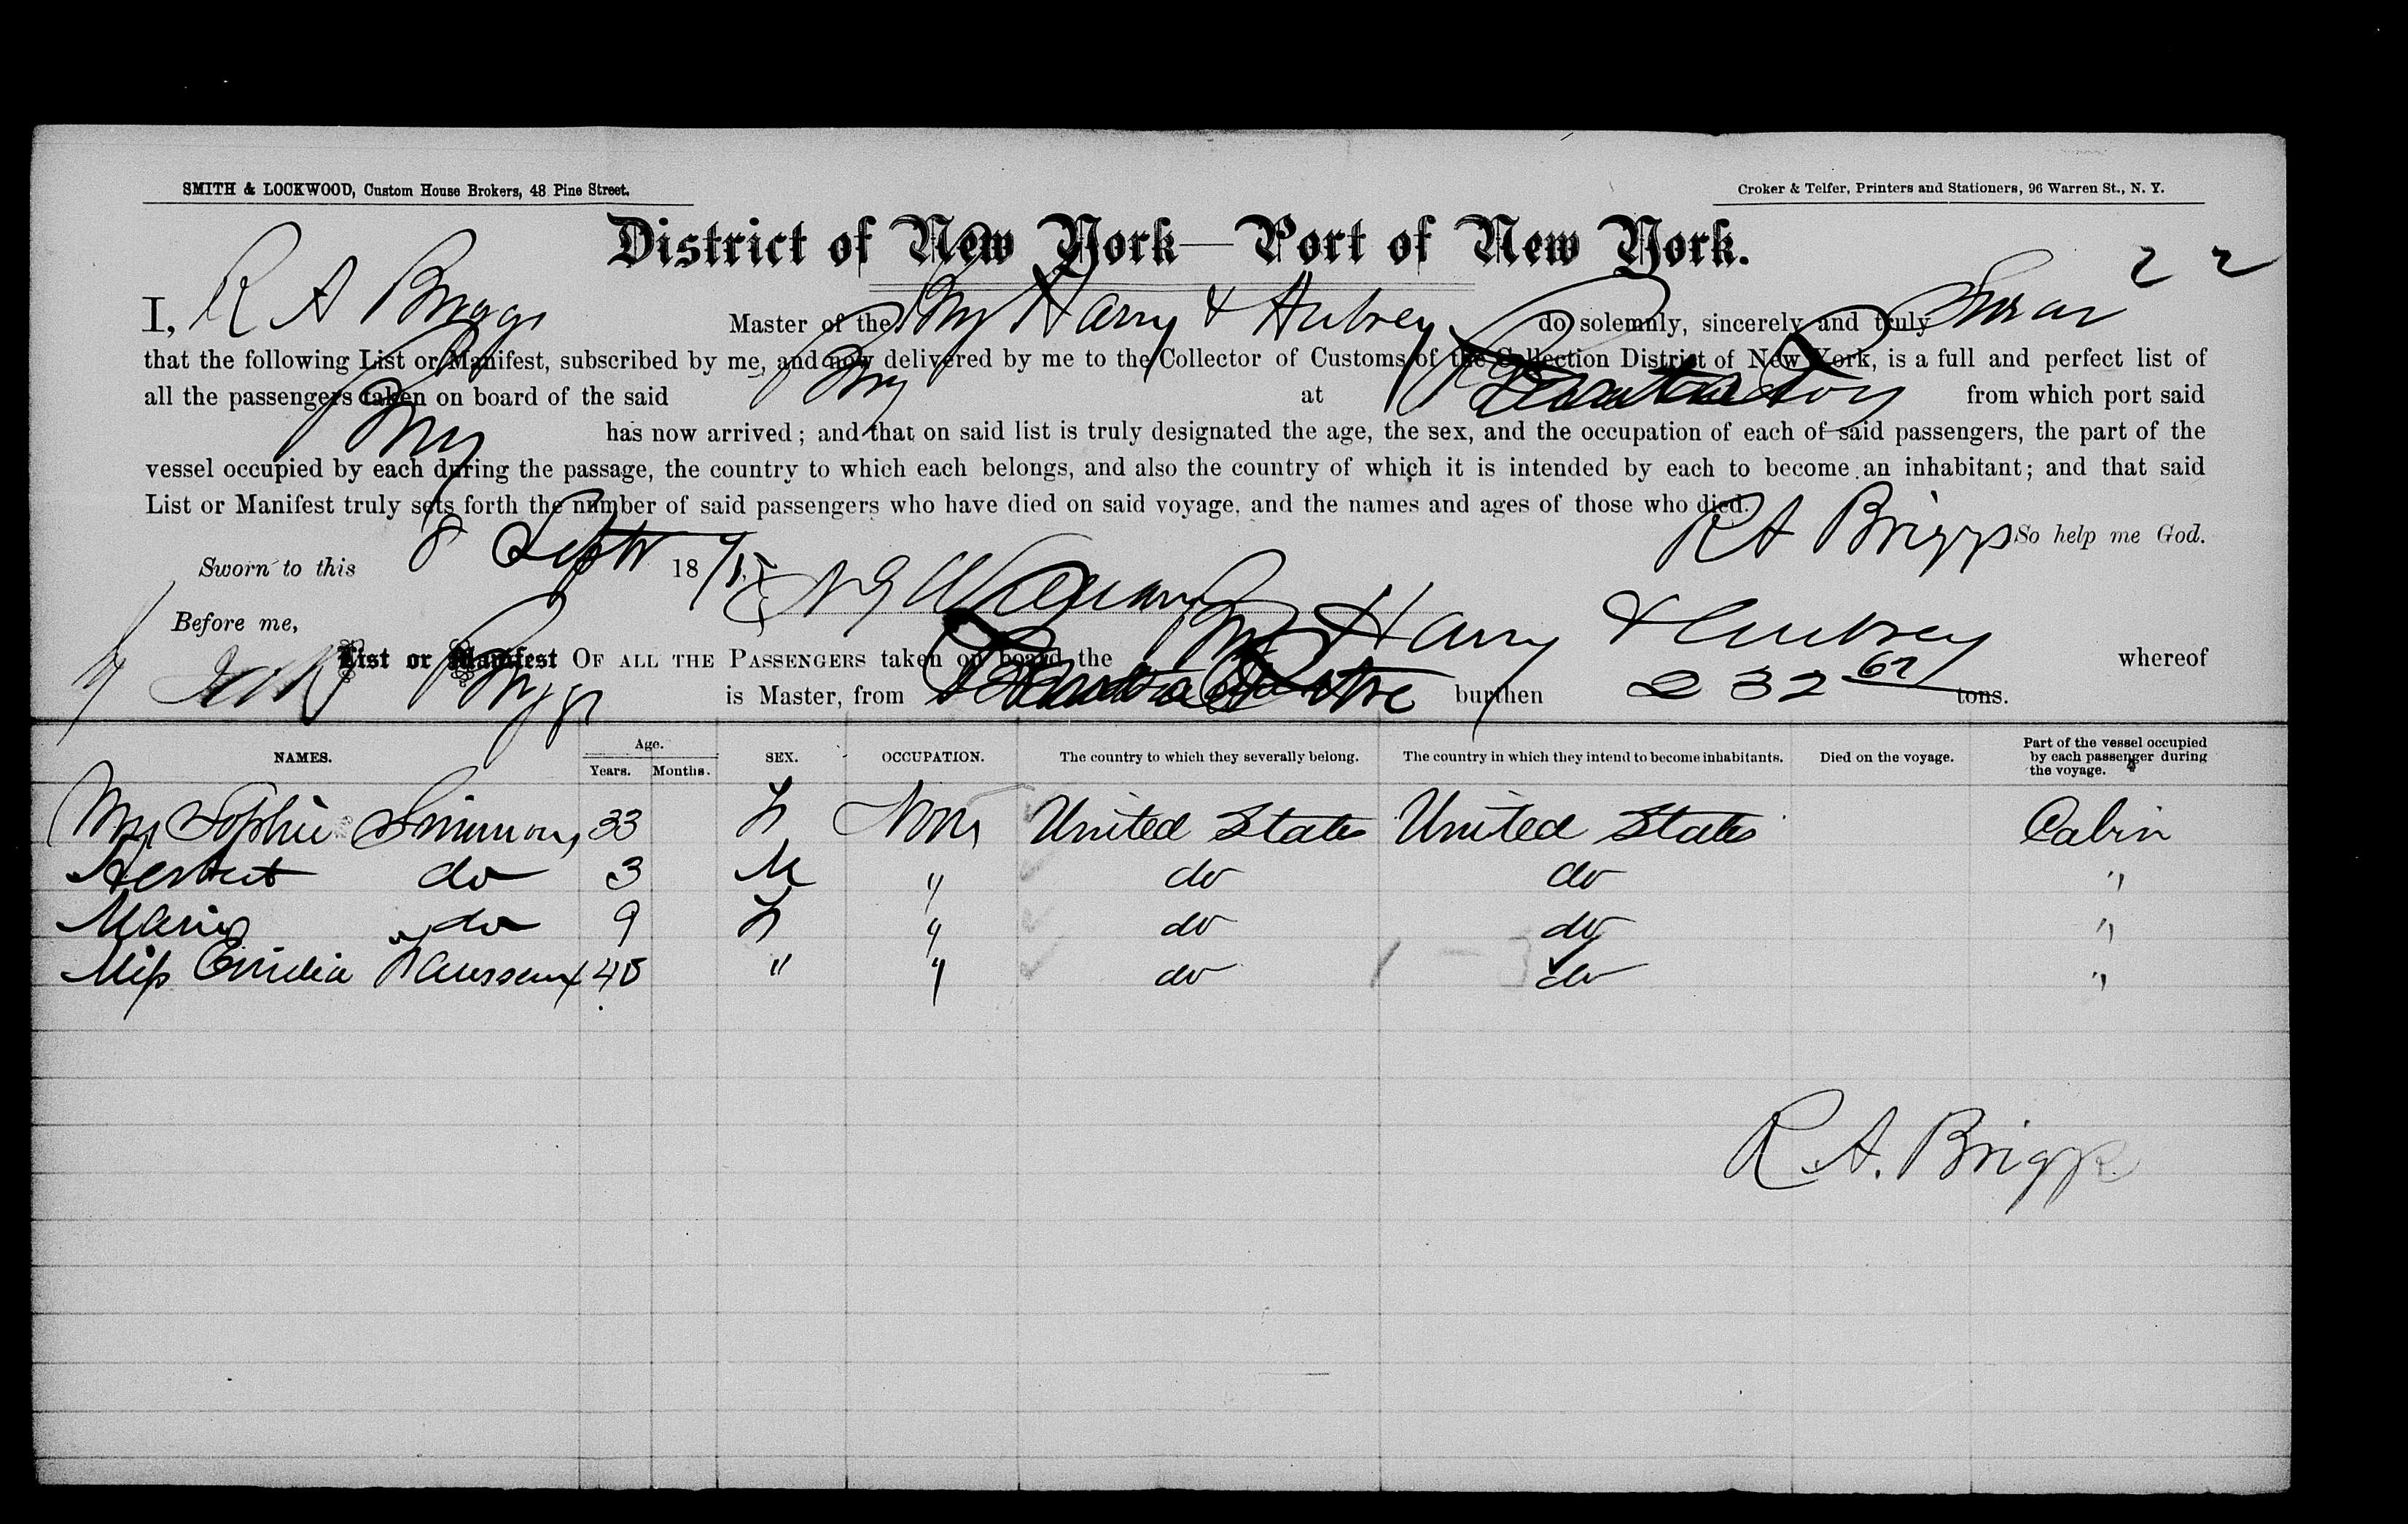 SMITH & LOCKWOOD, Custom House Brokers, 48 Pine Street.
Croker & Telfer, Printers and Stationers, 96 Warren St., N. Y.
District of New York—Port of New York.
2 2
I, R A Briggs Master of the Harry & Aubrey do solemnly, sincerely and truly Swear
that the following List or Manifest, subscribed by me, and now delivered by me to the Collector of Customs of the Collection District of New York, is a full and perfect list of
all the passengers taken on board of the said at from which port said
has now arrived; and that on said list is truly designated the age, the sex, and the occupation of each of said passengers, the part of the
vessel occupied by each during the passage, the country to which each belongs, and also the country of which it is intended by each to become an inhabitant; and that said
List or Manifest truly sets forth the number of said passengers who have died on said voyage, and the names and ages of those who died.
R A Briggs So help me God.
Sworn to this 8 Sept 18
Before me,
List or Manifest OF ALL THE PASSENGERS taken on board the Harry & Aubrey whereof
Briggs is Master, from burthen 232 67 tons.
NAMES. Age. Years. Months. SEX. OCCUPATION. The country to which they severally belong. The country in which they intend to become inhabitants. Died on the voyage. Part of the vessel occupied by each passenger during the voyage.
Mrs Sophie Simmons 33 F None United States United States Cabin
Herbert do 3 M " do do "
Marie do 9 F " do do "
Miss Emelia 40 " " do do "
1 - 3
R. A. Briggs